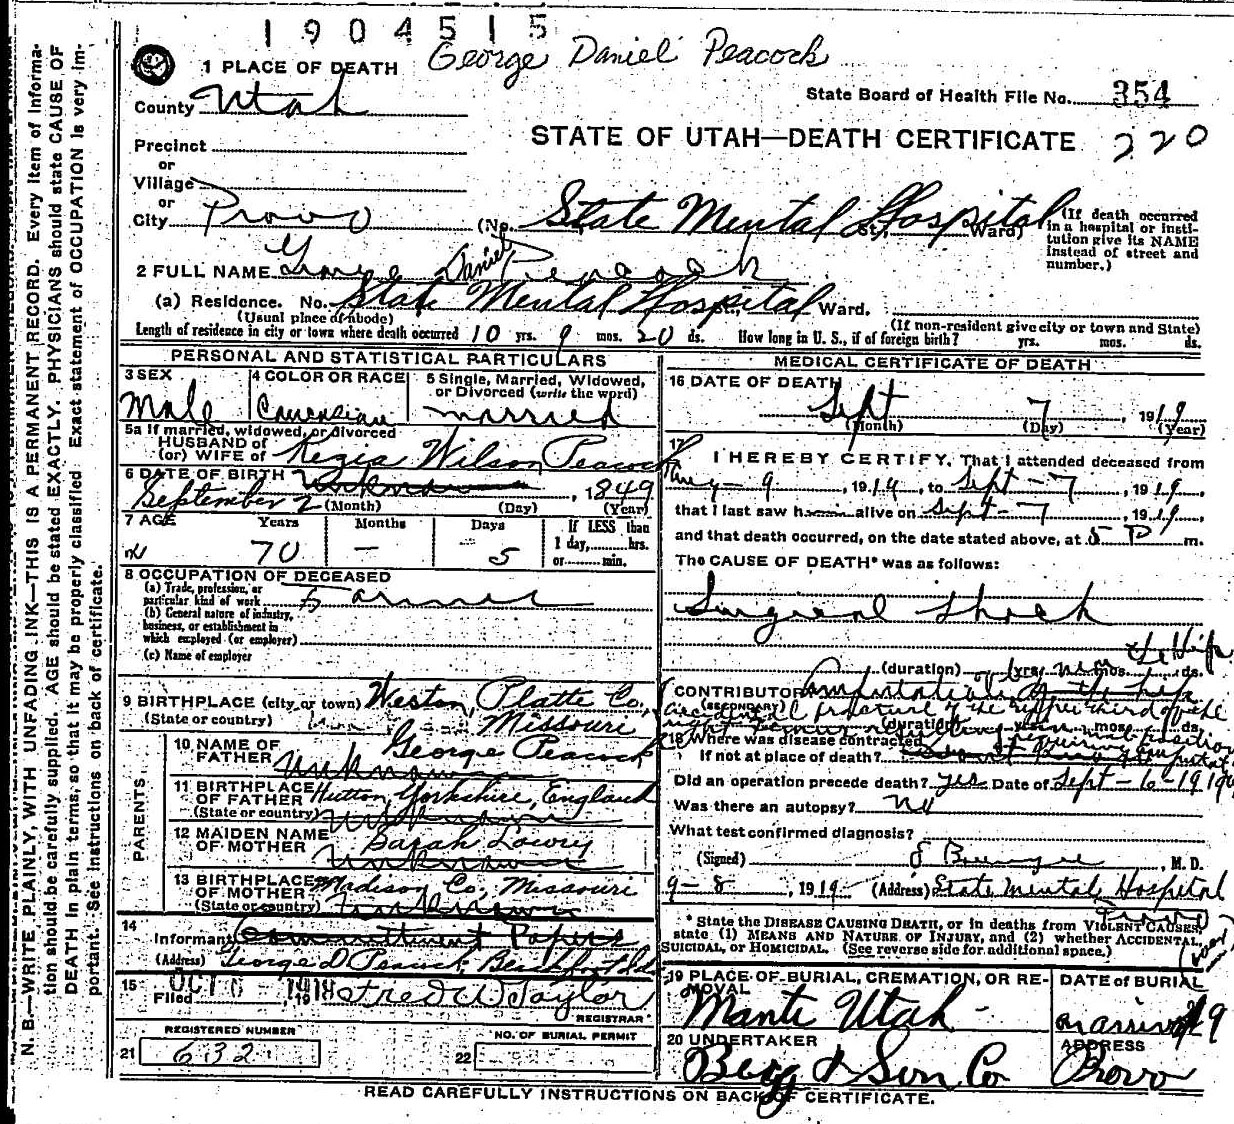 1904515
George Daniel Peacock
1 PLACE OF DEATH
State Board of Health File No. 354
County Utah
STATE OF UTAH—DEATH CERTIFICATE
220
Precinct
or
Village
or
City Provo (No. State Mental Hospital St., Ward)
(If death occurred in a hospital or institution give its NAME instead of street and number.)
2 FULL NAME George Daniel Peacock
(a) Residence. No. State Mental Hospital St., Ward.
(Usual place of abode)
(If non-resident give city or town and State)
Length of residence in city or town where death occurred 10 yrs. 9 mos. 20 ds. How long in U. S., if of foreign birth? yrs. mos. ds.
PERSONAL AND STATISTICAL PARTICULARS
3 SEX
Male
4 COLOR OR RACE
Caucasian
5 Single, Married, Widowed, or Divorced (write the word)
Married
5a If married, widowed, or divorced
HUSBAND of
(or) WIFE of Kezia Wilson Peacock
6 DATE OF BIRTH Unknown
September 2, 1849
(Month) (Day) (Year)
7 AGE Years Months Days If LESS than
70 — 5 1 day,.....hrs.
or.....min.
8 OCCUPATION OF DECEASED
(a) Trade, profession, or
particular kind of work Farmer
(b) General nature of industry,
business, or establishment in
which employed (or employer)
(c) Name of employer
9 BIRTHPLACE (city or town) Weston, Platte Co.,
(State or country) Missouri
PARENTS
10 NAME OF FATHER George Peacock
Unknown
11 BIRTHPLACE OF FATHER Hutton, Yorkshire, England
(State or country) Unknown
12 MAIDEN NAME OF MOTHER Sarah Lowry
Unknown
13 BIRTHPLACE OF MOTHER Madison Co., Missouri
(State or country) Unknown
14
Informant Committment Papers
(Address) George D Peacock,
15
Filed OCT Fred W Taylor
REGISTRAR
REGISTERED NUMBER
21 632
NO. OF BURIAL PERMIT
22
MEDICAL CERTIFICATE OF DEATH
16 DATE OF DEATH
Sept 7, 1919
(Month) (Day) (Year)
17
I HEREBY CERTIFY, That I attended deceased from
9, 1914, to Sept - 7, 1919,
that I last saw him alive on Sept - 7, 1919,
and that death occurred, on the date stated above, at 5 P m.
The CAUSE OF DEATH* was as follows:
Surgical Shock
(duration) yrs. mos. ds.
CONTRIBUTORY Amputation of the hip
(SECONDARY) fracture of the upper third of the
right femur
(duration) yrs. mos. ds.
18 Where was disease contracted
If not at place of death?
Did an operation precede death? yes Date of Sept - 6 - 1919
Was there an autopsy? no
What test confirmed diagnosis?
(Signed) , M. D.
9 - 8, 1919 (Address) State Mental Hospital
Provo
* State the DISEASE CAUSING DEATH, or in deaths from VIOLENT CAUSES, state (1) MEANS AND NATURE OF INJURY, and (2) whether ACCIDENTAL, SUICIDAL, or HOMICIDAL. (See reverse side for additional space.)
(over)
19 PLACE OF BURIAL, CREMATION, OR REMOVAL
Manti Utah
DATE of BURIAL
20 UNDERTAKER
Berg & Son Co
ADDRESS
Provo
READ CAREFULLY INSTRUCTIONS ON BACK OF CERTIFICATE.
N. B.—WRITE PLAINLY, WITH UNFADING INK—THIS IS A PERMANENT RECORD. Every item of information should be carefully supplied. AGE should be stated EXACTLY. PHYSICIANS should state CAUSE OF DEATH in plain terms, so that it may be properly classified. Exact statement of OCCUPATION is very important. See instructions on back of certificate.